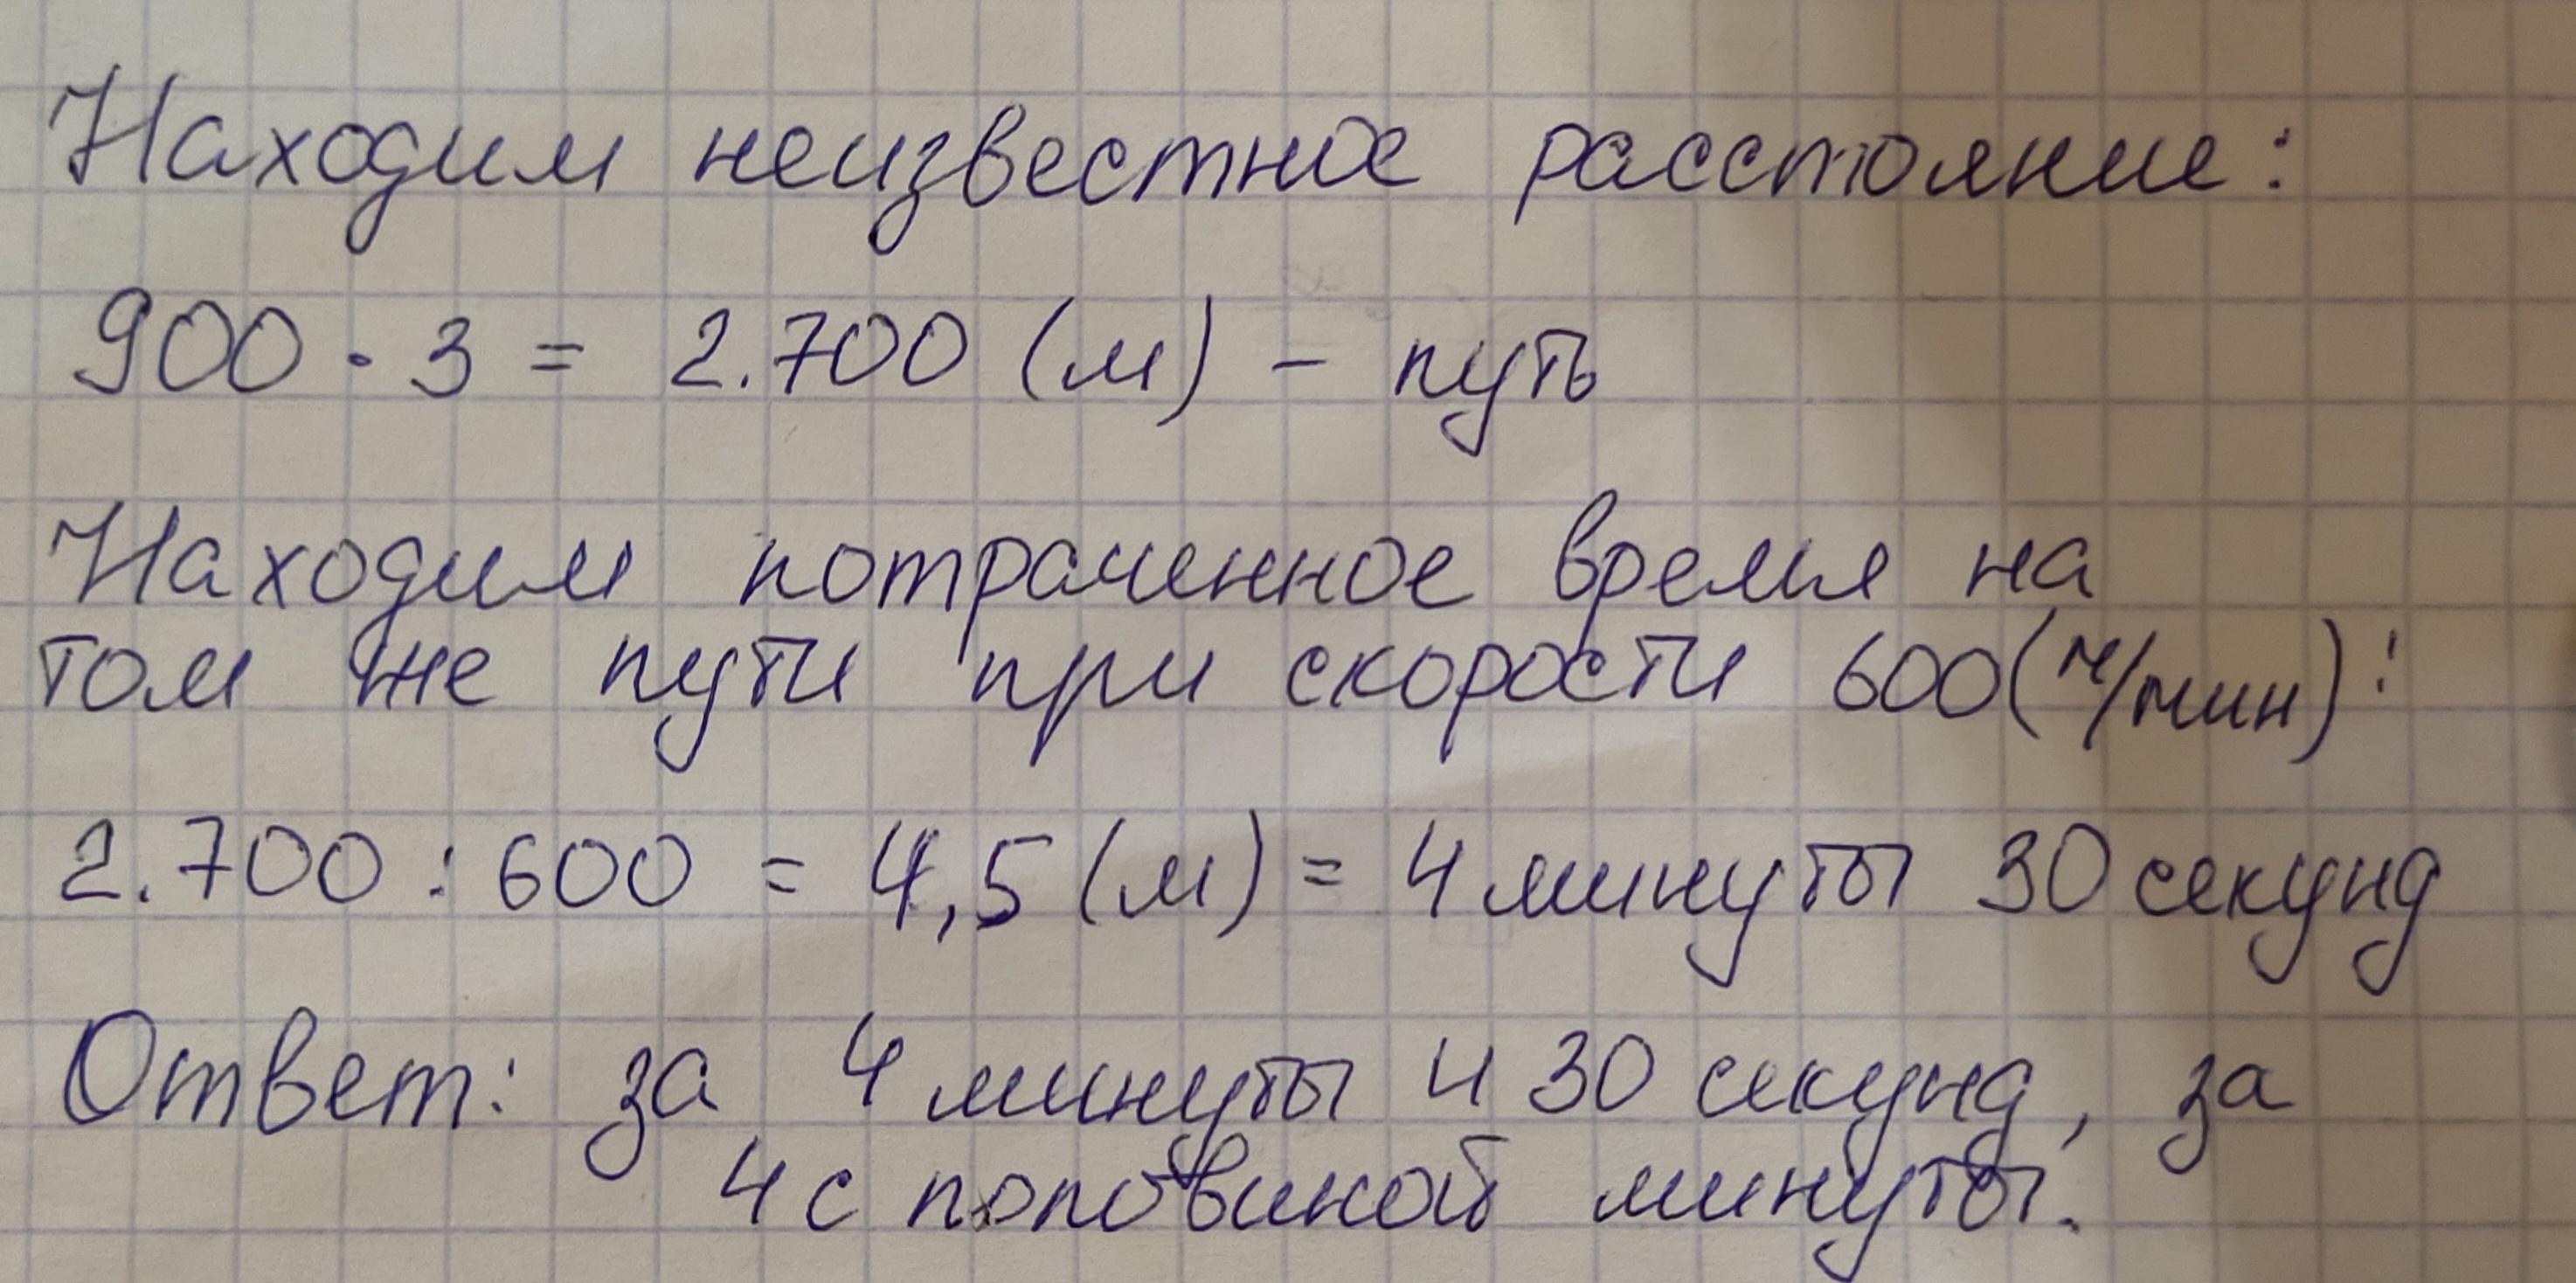 Находим неизвестное расстояние:
900 · 3 = 2.700 (м) - путь
Находим потраченное время на
том же пути при скорости 600(м/мин):
2.700 : 600 = 4,5 (м) = 4 минуты 30 секунд
Ответ: за 4 минуты и 30 секунд, за
4 с половиной минуты.